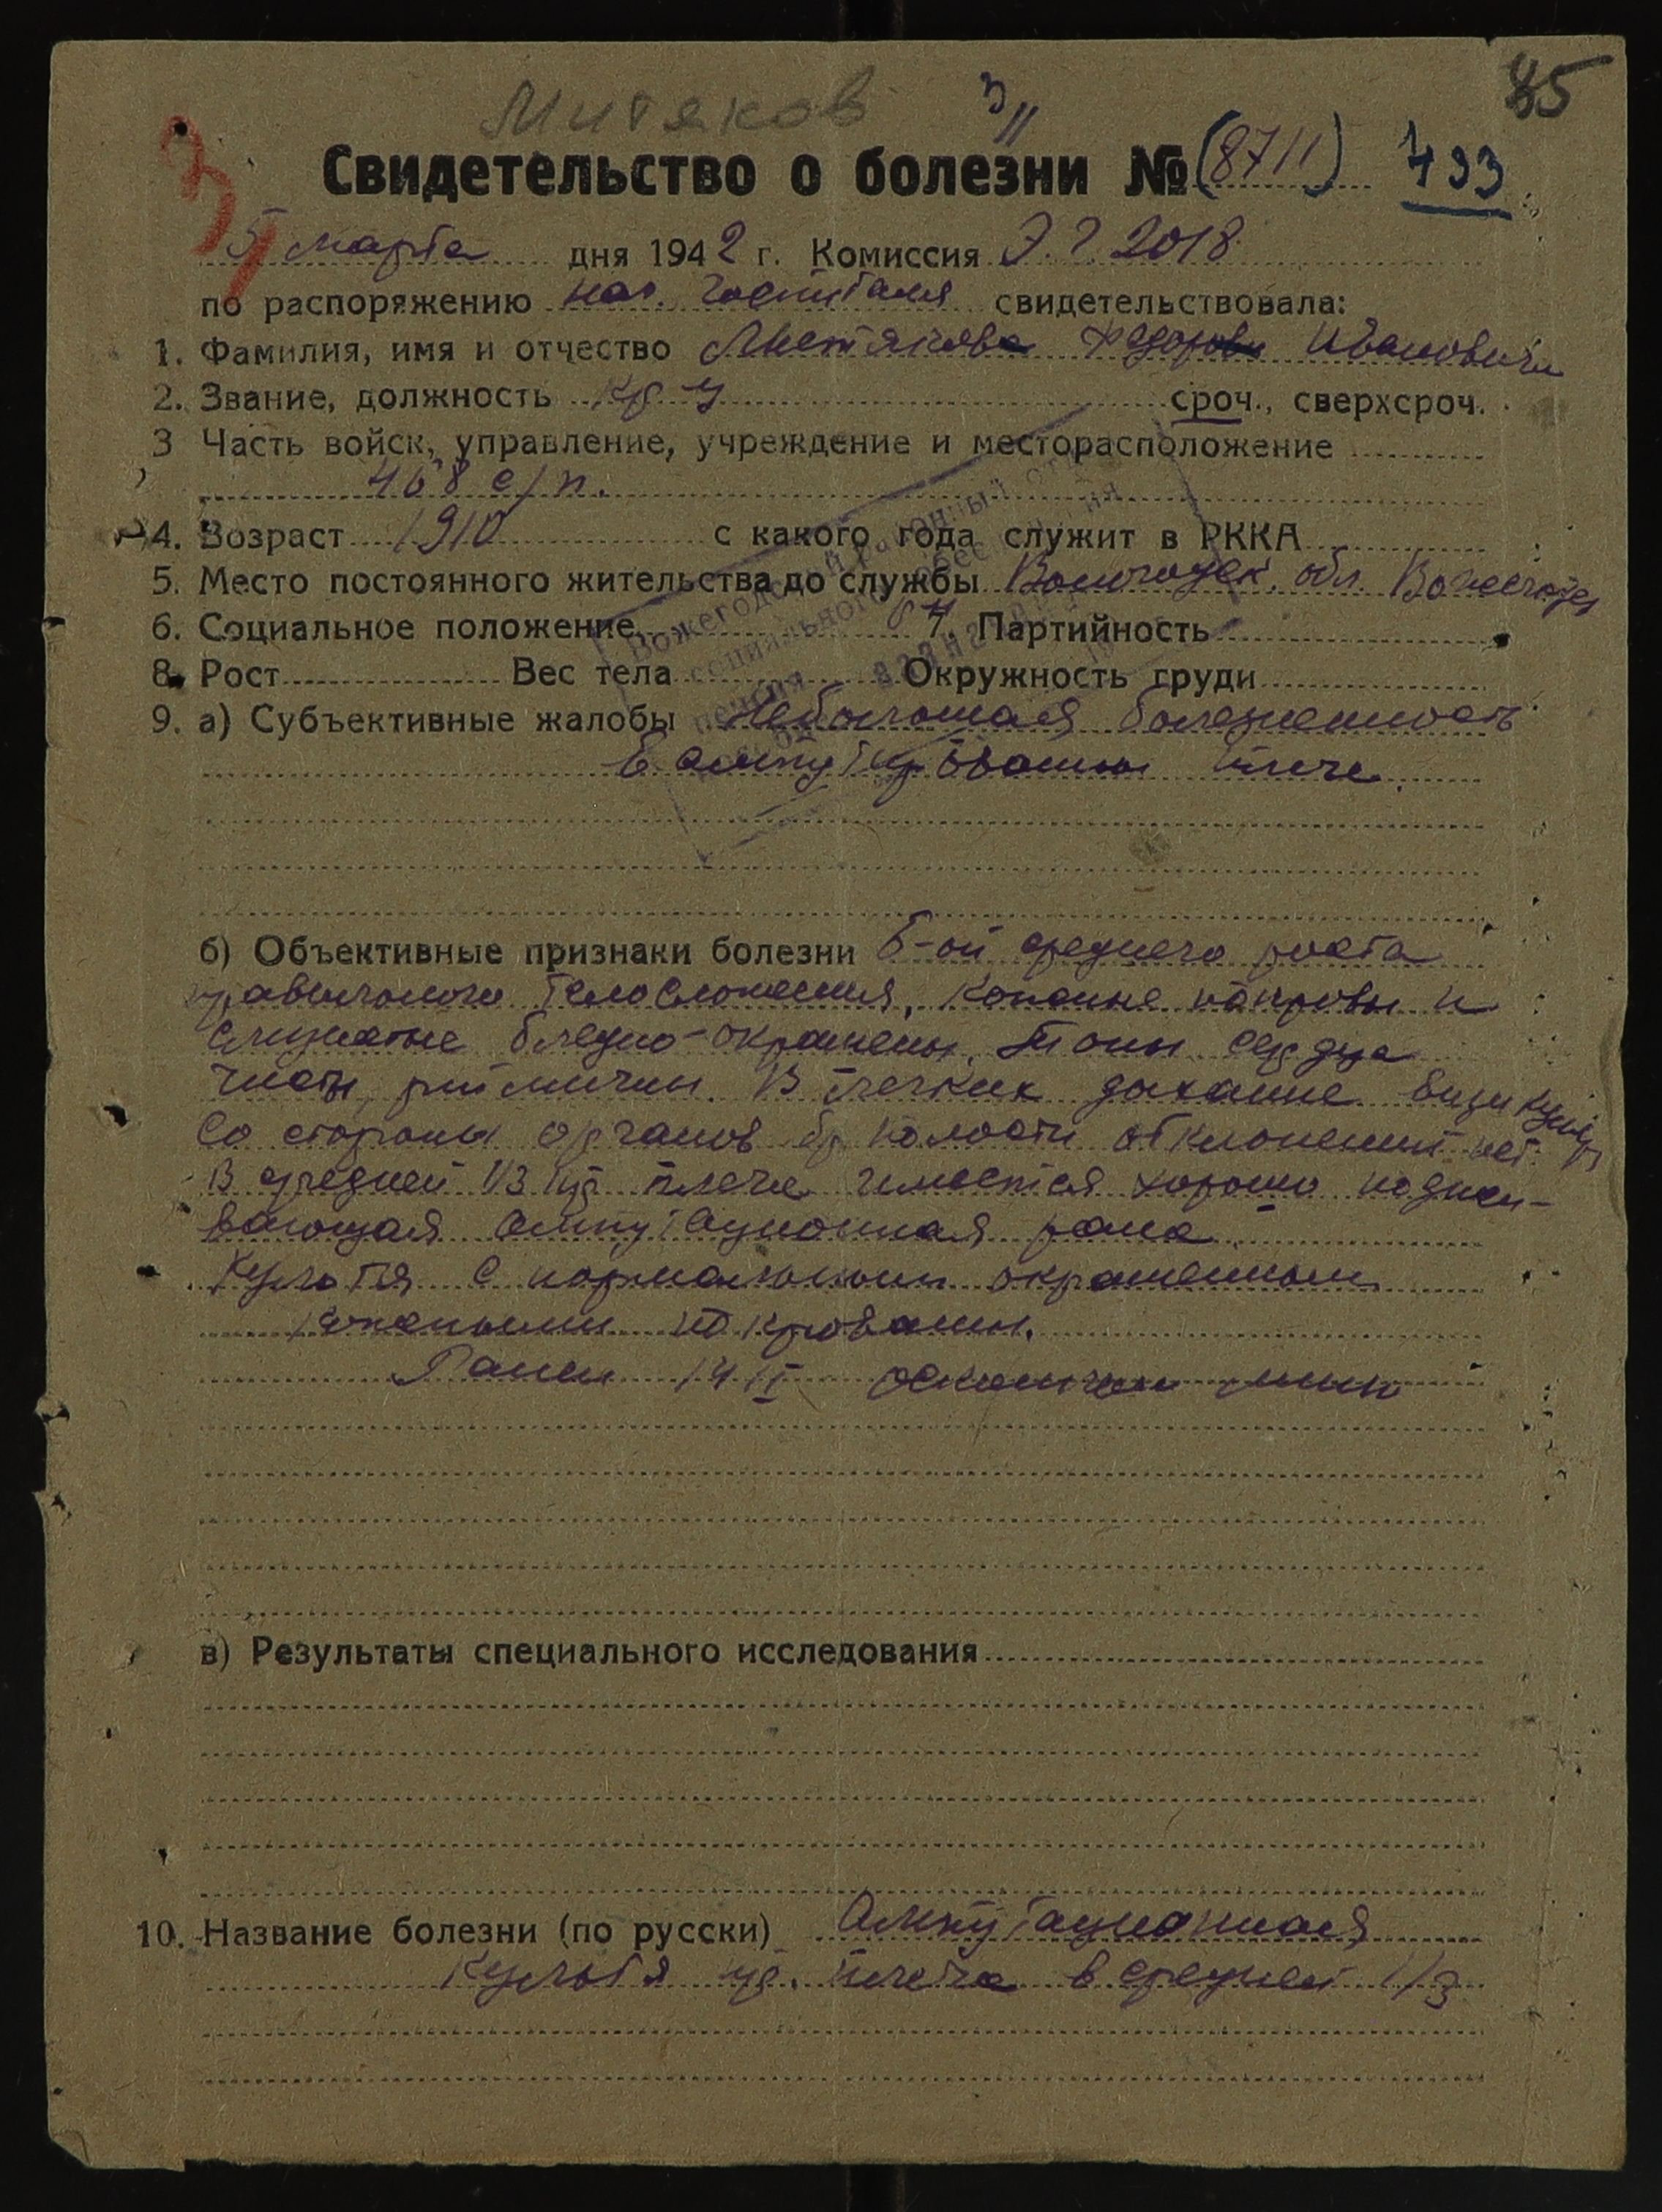 85
Митяков
3/II
Свидетельство о болезни № (8711) 493
5 марта дня 1942 г. Комиссия Э.Г. 2018
по распоряжению нач. госпиталя свидетельствовала:
1. Фамилия, имя и отчество Митякова Федора Ивановича
2. Звание, должность кр-ц сроч., сверхсроч.
3 Часть войск, управление, учреждение и месторасположение
468 с/п.
4. Возраст 1910 с какого года служит в РККА
5. Место постоянного жительства до службы Вологодск. обл. Вожегод
6. Социальное положение 7. Партийность
8. Рост Вес тела Окружность груди
Вожегодский районный отдел
социального обеспечения
пенсия
9. а) Субъективные жалобы Небольшая болезненность
в ампутированном плече.
б) Объективные признаки болезни Б-ой среднего роста
правильного телосложения, кожные покровы и
слизистые бледно-окрашены. Тоны сердца
чисты, ритмичны. В легких дыхание везикуляр
Со стороны органов бр полости отклонений нет.
В средней 1/3 пр плеча имеется хорошо
ампутационная рана.
Культя с нормальными окрашенными
кожными покровами.
Ранен 14 II осколком мины
в) Результаты специального исследования
10. Название болезни (по русски) Ампутационная
культя пр. плеча в средней 1/3